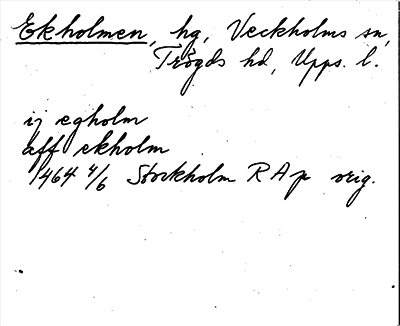 Ekholmen, hg, Veckholms sn,
Trögds hd, Upps. l.
ij egholm
aff ekholm
1464 4/6 Stockholm RAp orig.